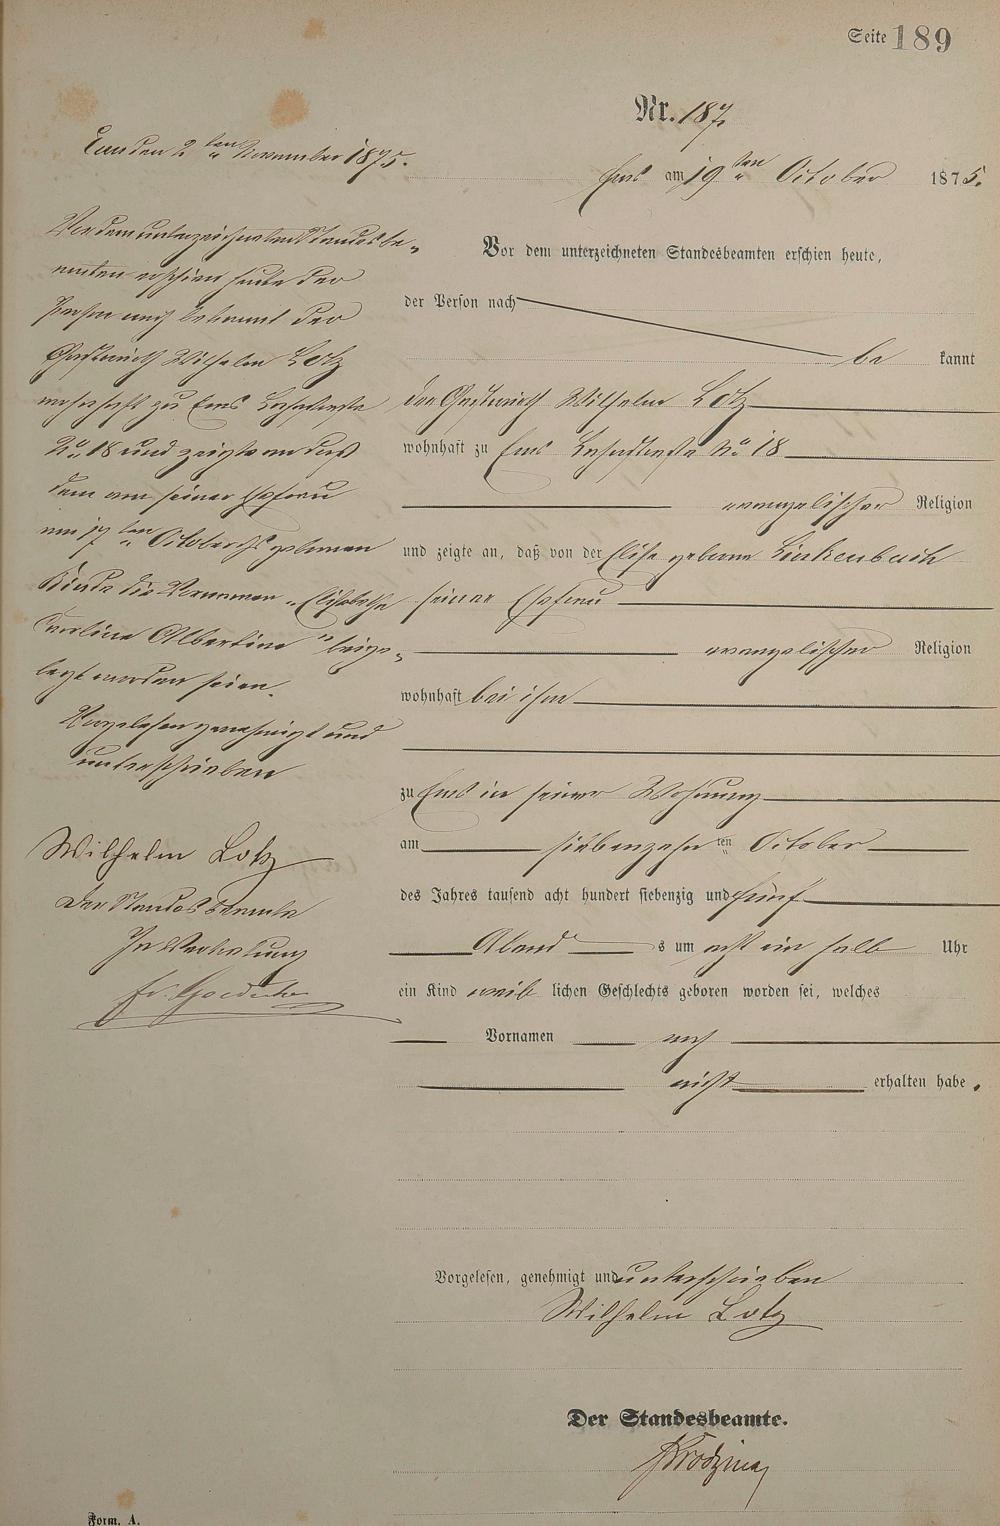 Seite 189
Nr. 187.
Ems am 19ten October 1875.
Vor dem unterzeichneten Standesbeamten erschien heute,
der Person nach
bekannt
der Gastwirth Wilhelm Lotz
wohnhaft zu Ems No 18
evangelischer Religion
und zeigte an, daß von der Elise geborne Linkenbach
seiner Ehefrau
evangelischer Religion
wohnhaft bei ihm
zu Ems in seiner Wohnung
am siebenzehnten October
des Jahres tausend acht hundert siebenzig und fünf
Abends um acht ein halb Uhr
ein Kind weiblichen Geschlechts geboren worden sei, welches
Vornamen noch
nicht erhalten habe.
Vorgelesen, genehmigt und unterschrieben
Wilhelm Lotz
Der Standesbeamte.
Form. A.
Ems den 2ten November 1875.
Vor dem unterzeichneten Standesbe-
amten erschien heute der
Person nach bekannt der
Gastwirth Wilhelm Lotz
wohnhaft zu Ems
No 18 und zeigte an daß
dem von seiner Ehefrau
am 17ten October geborenen
Kinde die Vornamen "Elisabethe
Karoline Albertine" beige-
legt worden seien.
Vorgelesen genehmigt und
unterschrieben
Wilhelm Lotz
Der Standesbeamte
In Vertretung